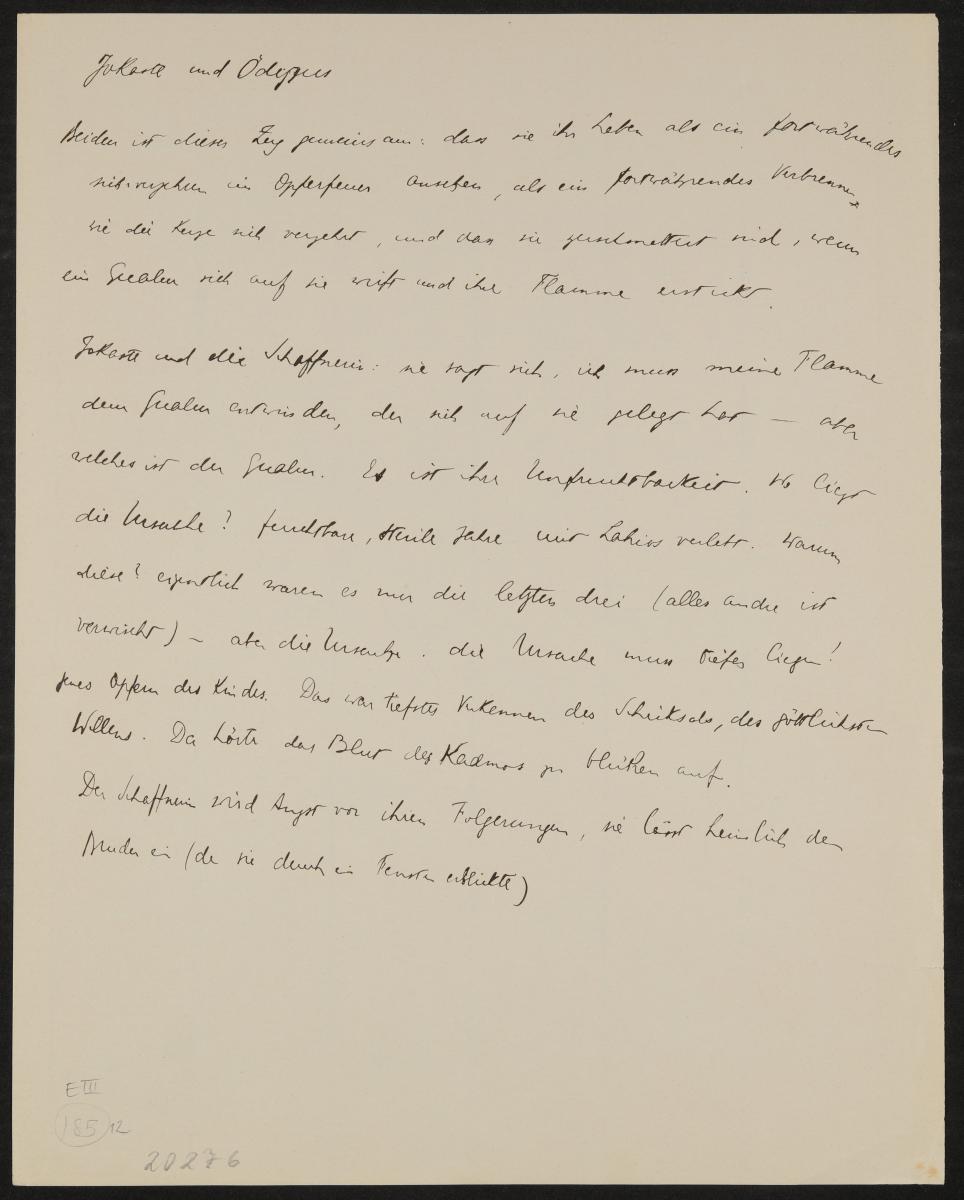 Jokaste und Ödipus
Beiden ist dieser Zug gemeinsam: dass sie ihr Leben als ein fortwährendes
sich-verzehren im Opferfeuer ansehen, als ein fortwährendes Verbrennen
wie die Kerze sich verzehrt, und dass sie zerschmettert sind, wenn
ein Qualm sich auf sie wirft und ihre Flamme erstickt.
Jokaste und die Schaffnerin: sie sagt sich, ich muss meine Flamme
dem Qualm entwinden, der sich auf sie gelegt hat — aber
welches ist der Qualm. Es ist ihre Unfruchtbarkeit. Wo liegt
die Ursache? furchtbare, sterile Jahre mit Lahios verlebt. Warum
diese? eigentlich waren es nur die letzten drei (alles andre ist
verwischt) – aber die Ursache. die Ursache muss tiefer liegen!
jenes Opfern des Kindes. Das war tiefstes Verkennen des Schicksals, des göttlichsten
Willens. Da hörte das Blut des Kadmos zu blühen auf.
Der Schaffnerin wird Angst vor ihren Folgerungen, sie lässt heimlich den
Bruder ein (den sie durch ein Fenster erblickte)
E III
185 12
20276